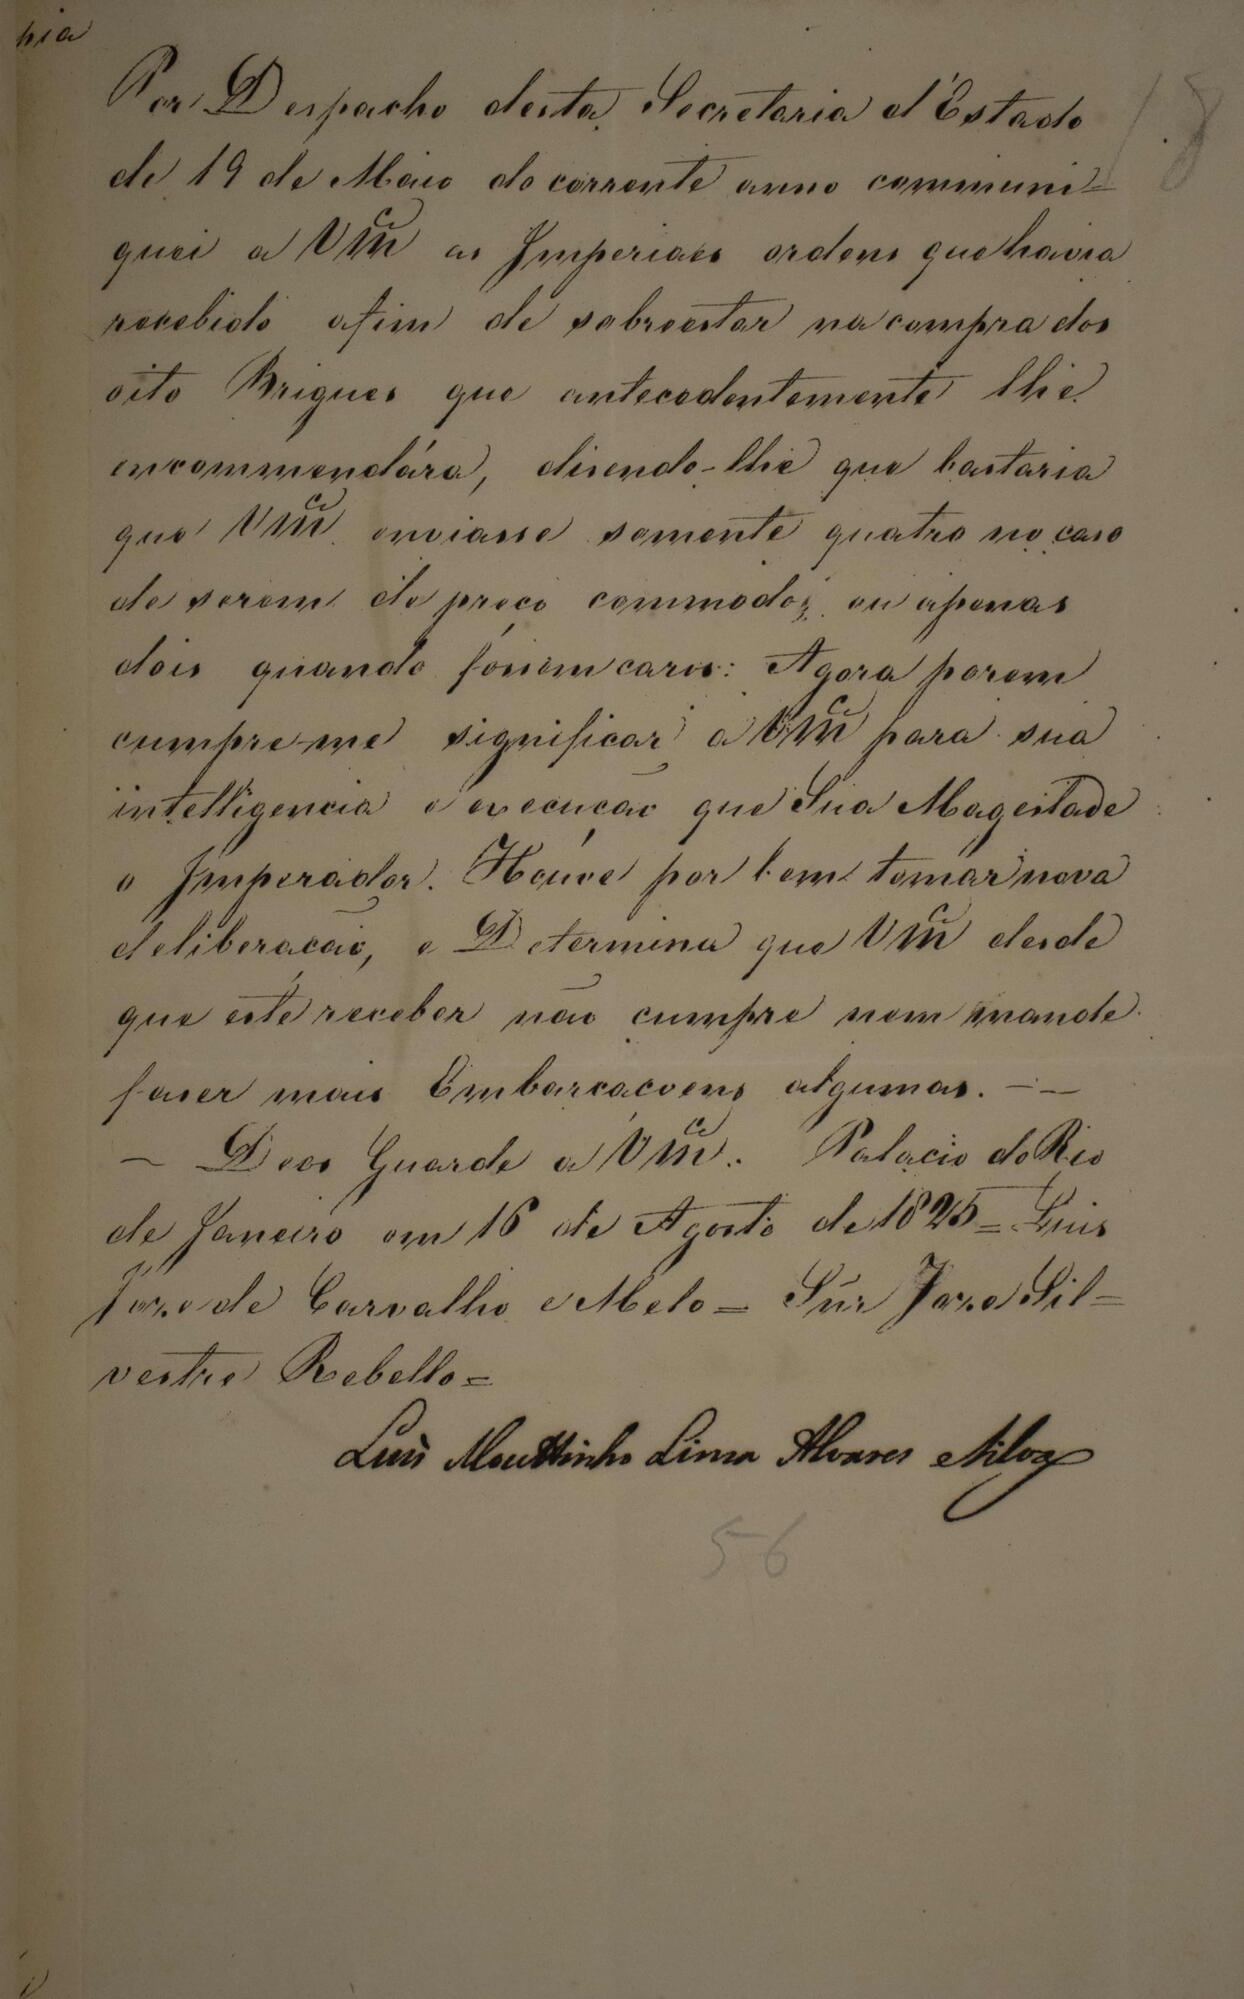 pia
18
Por Despacho desta Secretaria d'Estado
de 19 de Maio do corrente anno communi=
quei a Vmce as Imperiaes ordens que havia
recebido afim de sobreestar na compra dos
oito Brigues que antecedentemente lhe
encommendára, disendo-lhe que bastaria
que Vmce enviasse somente quatro no caso
de serem de preço commodo; ou apenas
dois quando fossem caros: Agora porem
cumpre-me significar a Vmce para sua
intelligencia e execução que Sua Magestade
o Imperador. Houve por bem tomar nova
deliberação, e Determina que Vmce desde
que este receber não cumpre nem mande
faser mais Embarcaçoens algumas. — —
— Deos Guarde a Vmce. Palacio do Rio
de Janeiro em 16 de Agosto de 1825 = Luis
Joze de Carvalho e Melo = Snr Joze Sil=
vestre Rebello =
Luis Mouttinho Lima Alvares eSilva
56